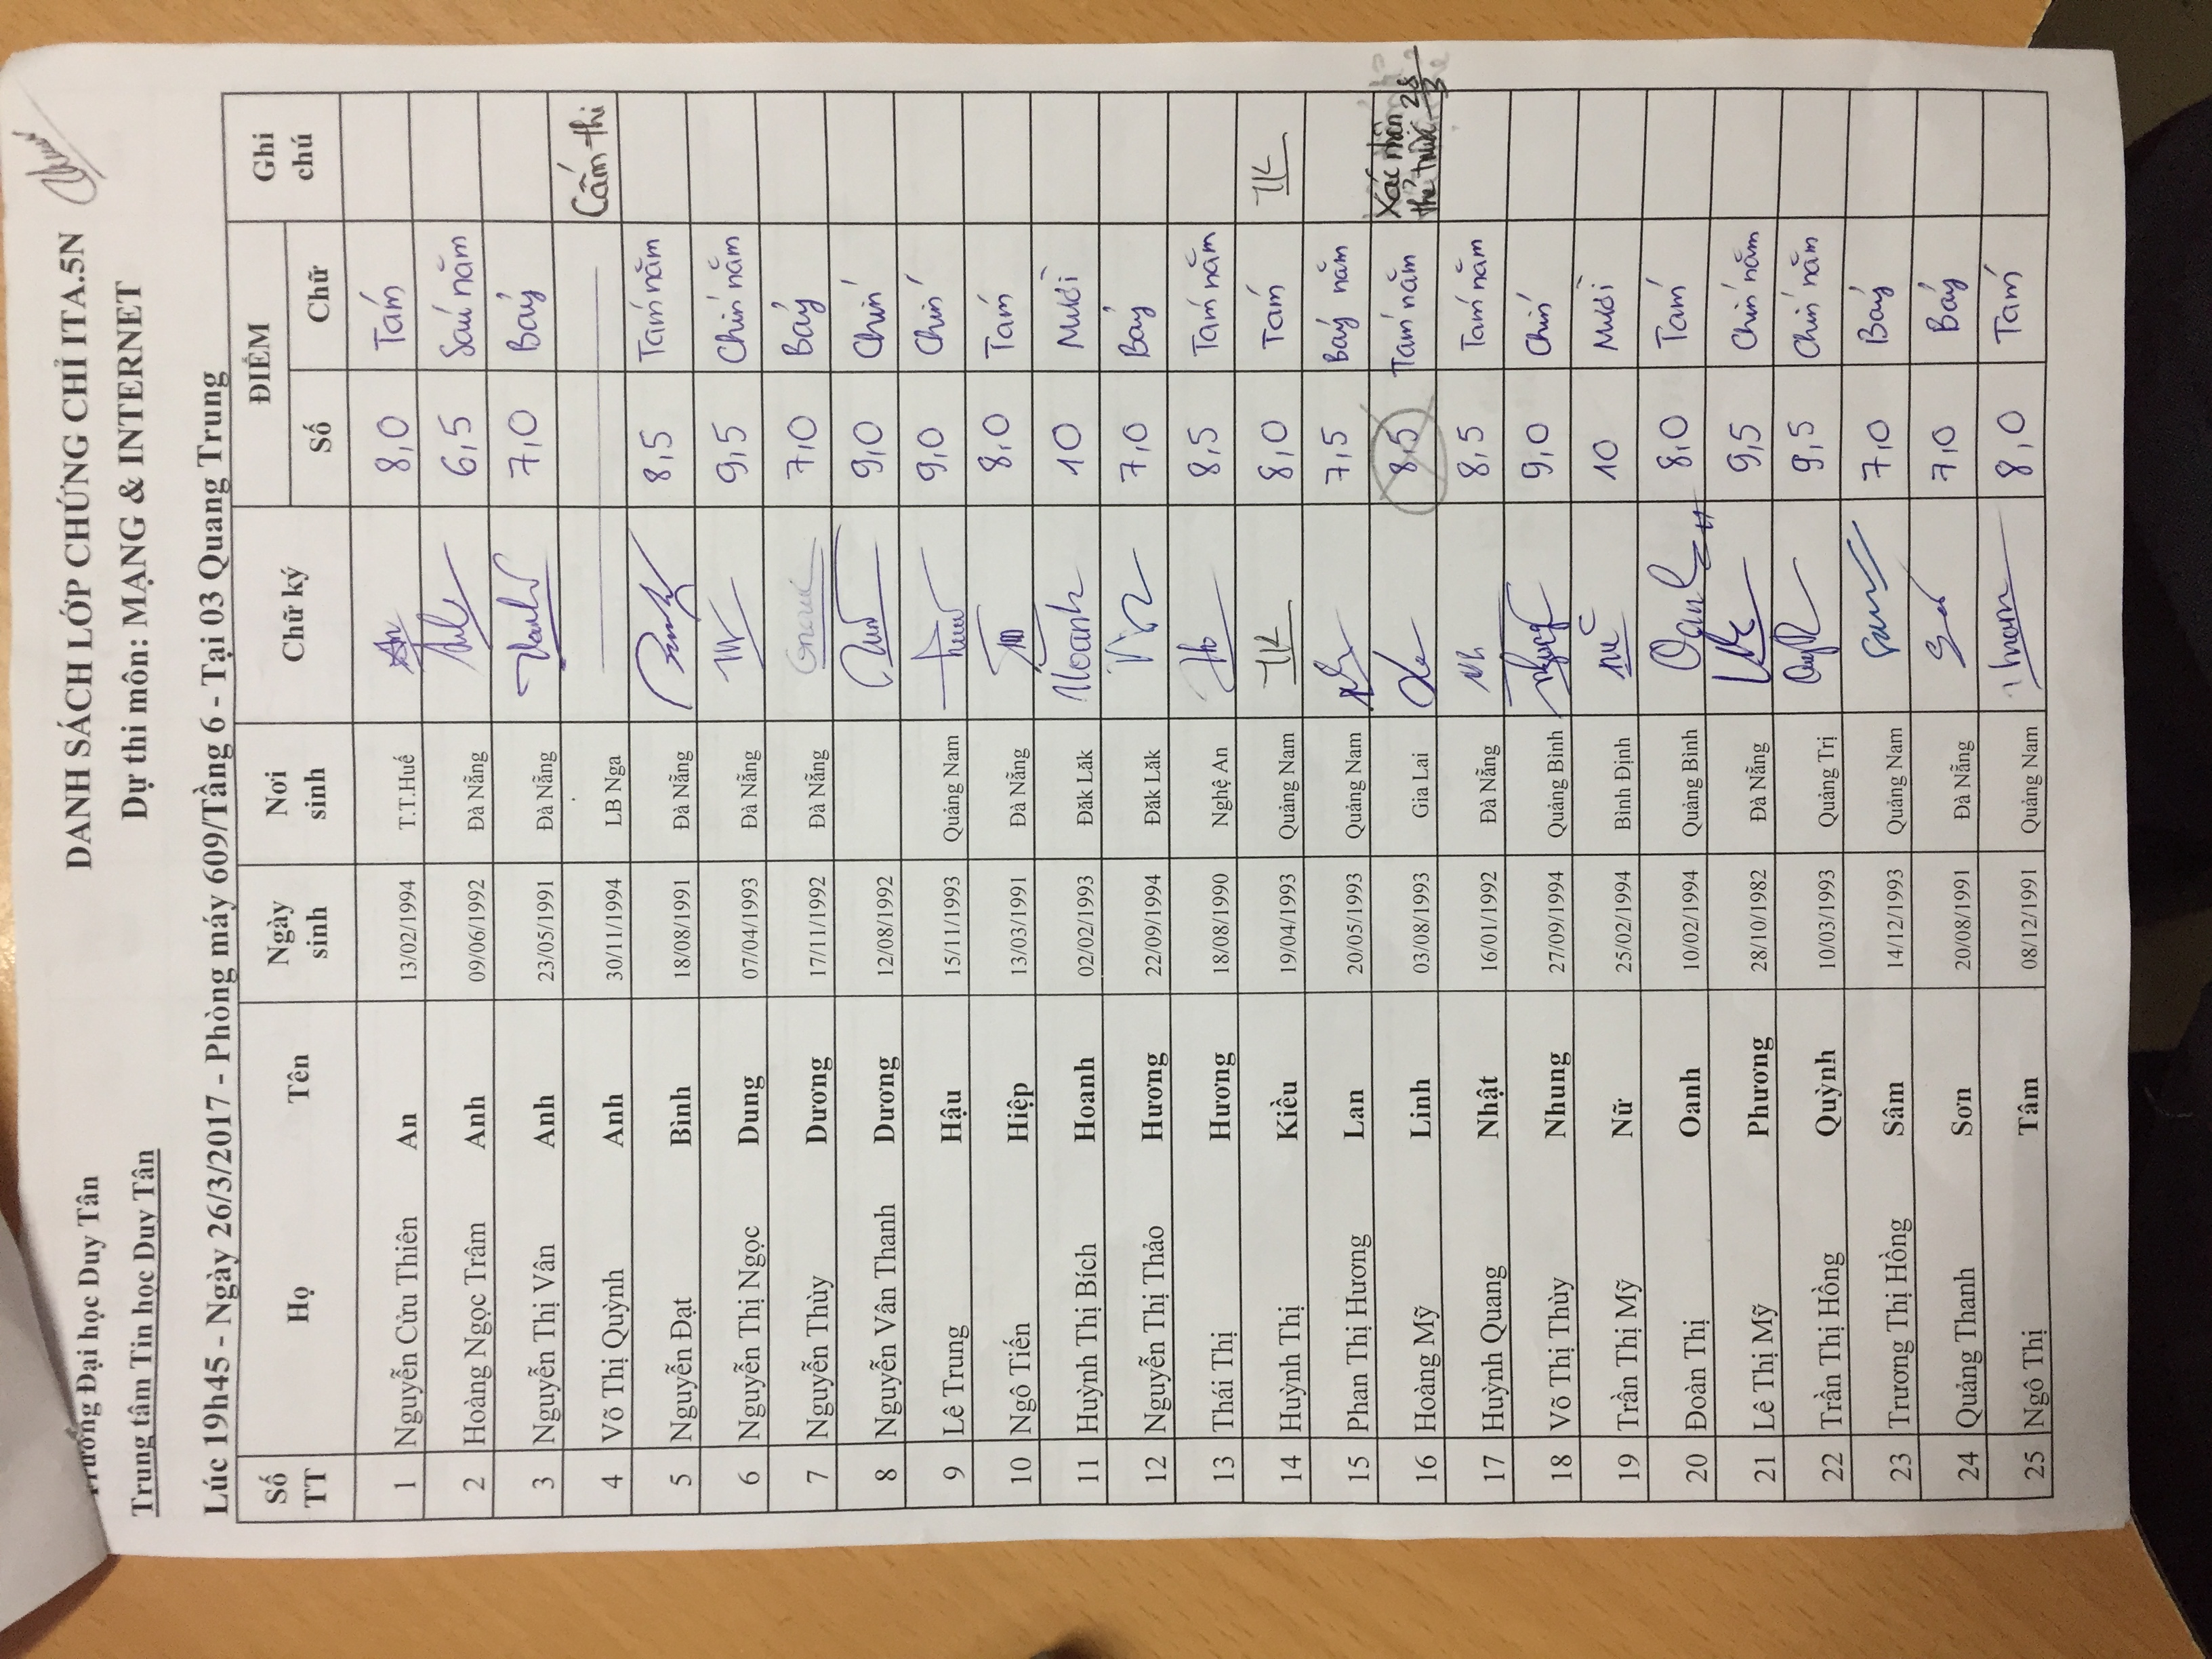 Trường Đại học Duy Tân
Trung tâm Tin học Duy Tân
DANH SÁCH LỚP CHỨNG CHỈ ITA.5N
Dự thi môn: MẠNG & INTERNET
Lúc 19h45 - Ngày 26/3/2017 - Phòng máy 609/Tầng 6 - Tại 03 Quang Trung
Số TT Họ Tên Ngày sinh Nơi sinh Chữ ký ĐIỂM Số Chữ Ghi chú
1 Nguyễn Cửu Thiên An 13/02/1994 T.T.Huế 8,0 Tám
2 Hoàng Ngọc Trâm Anh 09/06/1992 Đà Nẵng 6,5 Sáu năm
3 Nguyễn Thị Vân Anh 23/05/1991 Đà Nẵng 7,0 Bảy
4 Võ Thị Quỳnh Anh 30/11/1994 LB Nga Cấm thi
5 Nguyễn Đạt Bình 18/08/1991 Đà Nẵng 8,5 Tám năm
6 Nguyễn Thị Ngọc Dung 07/04/1993 Đà Nẵng 9,5 Chín năm
7 Nguyễn Thùy Dương 17/11/1992 Đà Nẵng 7,0 Bảy
8 Nguyễn Vân Thanh Dương 12/08/1992 9,0 Chín
9 Lê Trung Hậu 15/11/1993 Quảng Nam 9,0 Chín
10 Ngô Tiến Hiệp 13/03/1991 Đà Nẵng 8,0 Tám
11 Huỳnh Thị Bích Hoanh 02/02/1993 Đăk Lăk Hoanh 10 Mười
12 Nguyễn Thị Thảo Hương 22/09/1994 Đăk Lăk 7,0 Bảy
13 Thái Thị Hương 18/08/1990 Nghệ An 8,5 Tám năm
14 Huỳnh Thị Kiều 19/04/1993 Quảng Nam 8,0 Tám
15 Phan Thị Hương Lan 20/05/1993 Quảng Nam 7,5 Bảy năm
16 Hoàng Mỹ Linh 03/08/1993 Gia Lai 8,5 Tám năm Xác nhận thẻ trước 28/3
17 Huỳnh Quang Nhật 16/01/1992 Đà Nẵng 8,5 Tám năm
18 Võ Thị Thùy Nhung 27/09/1994 Quảng Bình 9,0 Chín
19 Trần Thị Mỹ Nữ 25/02/1994 Bình Định 10 Mười
20 Đoàn Thị Oanh 10/02/1994 Quảng Bình Oanh 8,0 Tám
21 Lê Thị Mỹ Phương 28/10/1982 Đà Nẵng 9,5 Chín năm
22 Trần Thị Hồng Quỳnh 10/03/1993 Quảng Trị 9,5 Chín năm
23 Trương Thị Hồng Sâm 14/12/1993 Quảng Nam 7,0 Bảy
24 Quảng Thanh Sơn 20/08/1991 Đà Nẵng 7,0 Bảy
25 Ngô Thị Tâm 08/12/1991 Quảng Nam 8,0 Tám